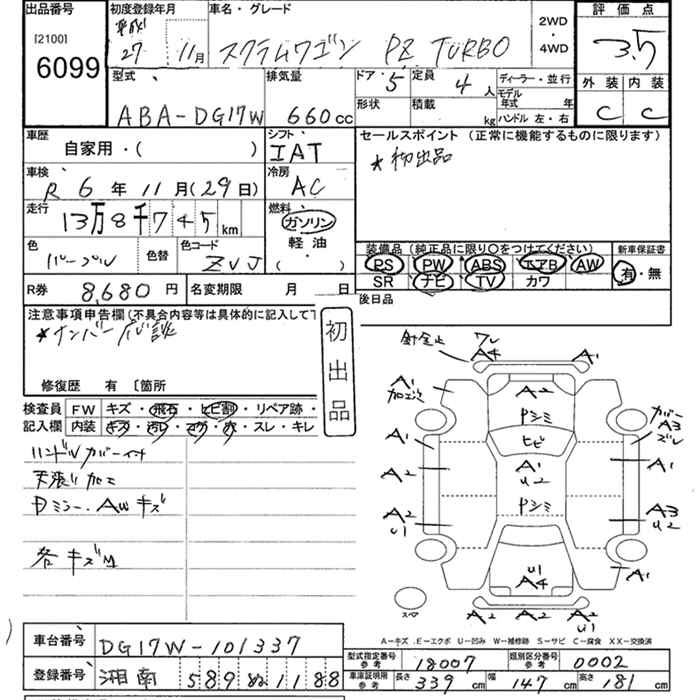 出品番号
[2100]
6099
初度登録年月
平成
27 11月
車名・グレード
スクラムワゴン PZ TURBO
2WD
・
4WD
評価点
3.5
外装 内装
C C
型式
ABA-DG17W
排気量
660cc
ドア・ 5
定員 4人
形状
積載 kg
ディーラー・並行
モデル年式 年
ハンドル 左・右
車歴
自家用・( )
シフト
IAT
セールスポイント (正常に機能するものに限ります)
*初出品
車検
R 6年 11月(29日)
冷房
AC
走行
13万8千745km
燃料
ガソリン
軽油
( )
色
パープル
色替
色コード
ZVJ
装備品 (純正品に限り○をつけてください)
PS PW ABS エアB AW
SR ナビ TV カワ
新車保証書
有・無
R券 8,680円
名変期限 月 日
後日品
注意事項申告欄(不具合内容等は具体的に記入して下
*ナンバー
修復歴 有 〔箇所
初出品
検査員 FW キズ・飛石・ヒビ割・リペア跡・
記入欄 内装 キズ・汚レ・コゲ・穴・スレ・キレ
ハンドルカバー付
天張り加工
Dミラー.AWキズ
各キズM
ワレ
A4
A1
A1
加工穴
A2
Pシミ
カバー
A3
ズレ
ヒビ
A1
A1
U2
A1
A2
Pシミ
A2
U1
A3
U2
U1
A4
A1
スペア
A2 A2 A2
U1
A-キズ .E-エクボ U-凹み W-補修跡 S-サビ C-腐食 XX-交換済
車台番号 DG17W-101337
登録番号 湘南 589 ぬ 1188
型式指定番号
参考
18007
類別区分番号
参考
0002
車庫証明用
参考
長さ 339cm 幅 147cm 高さ 181cm